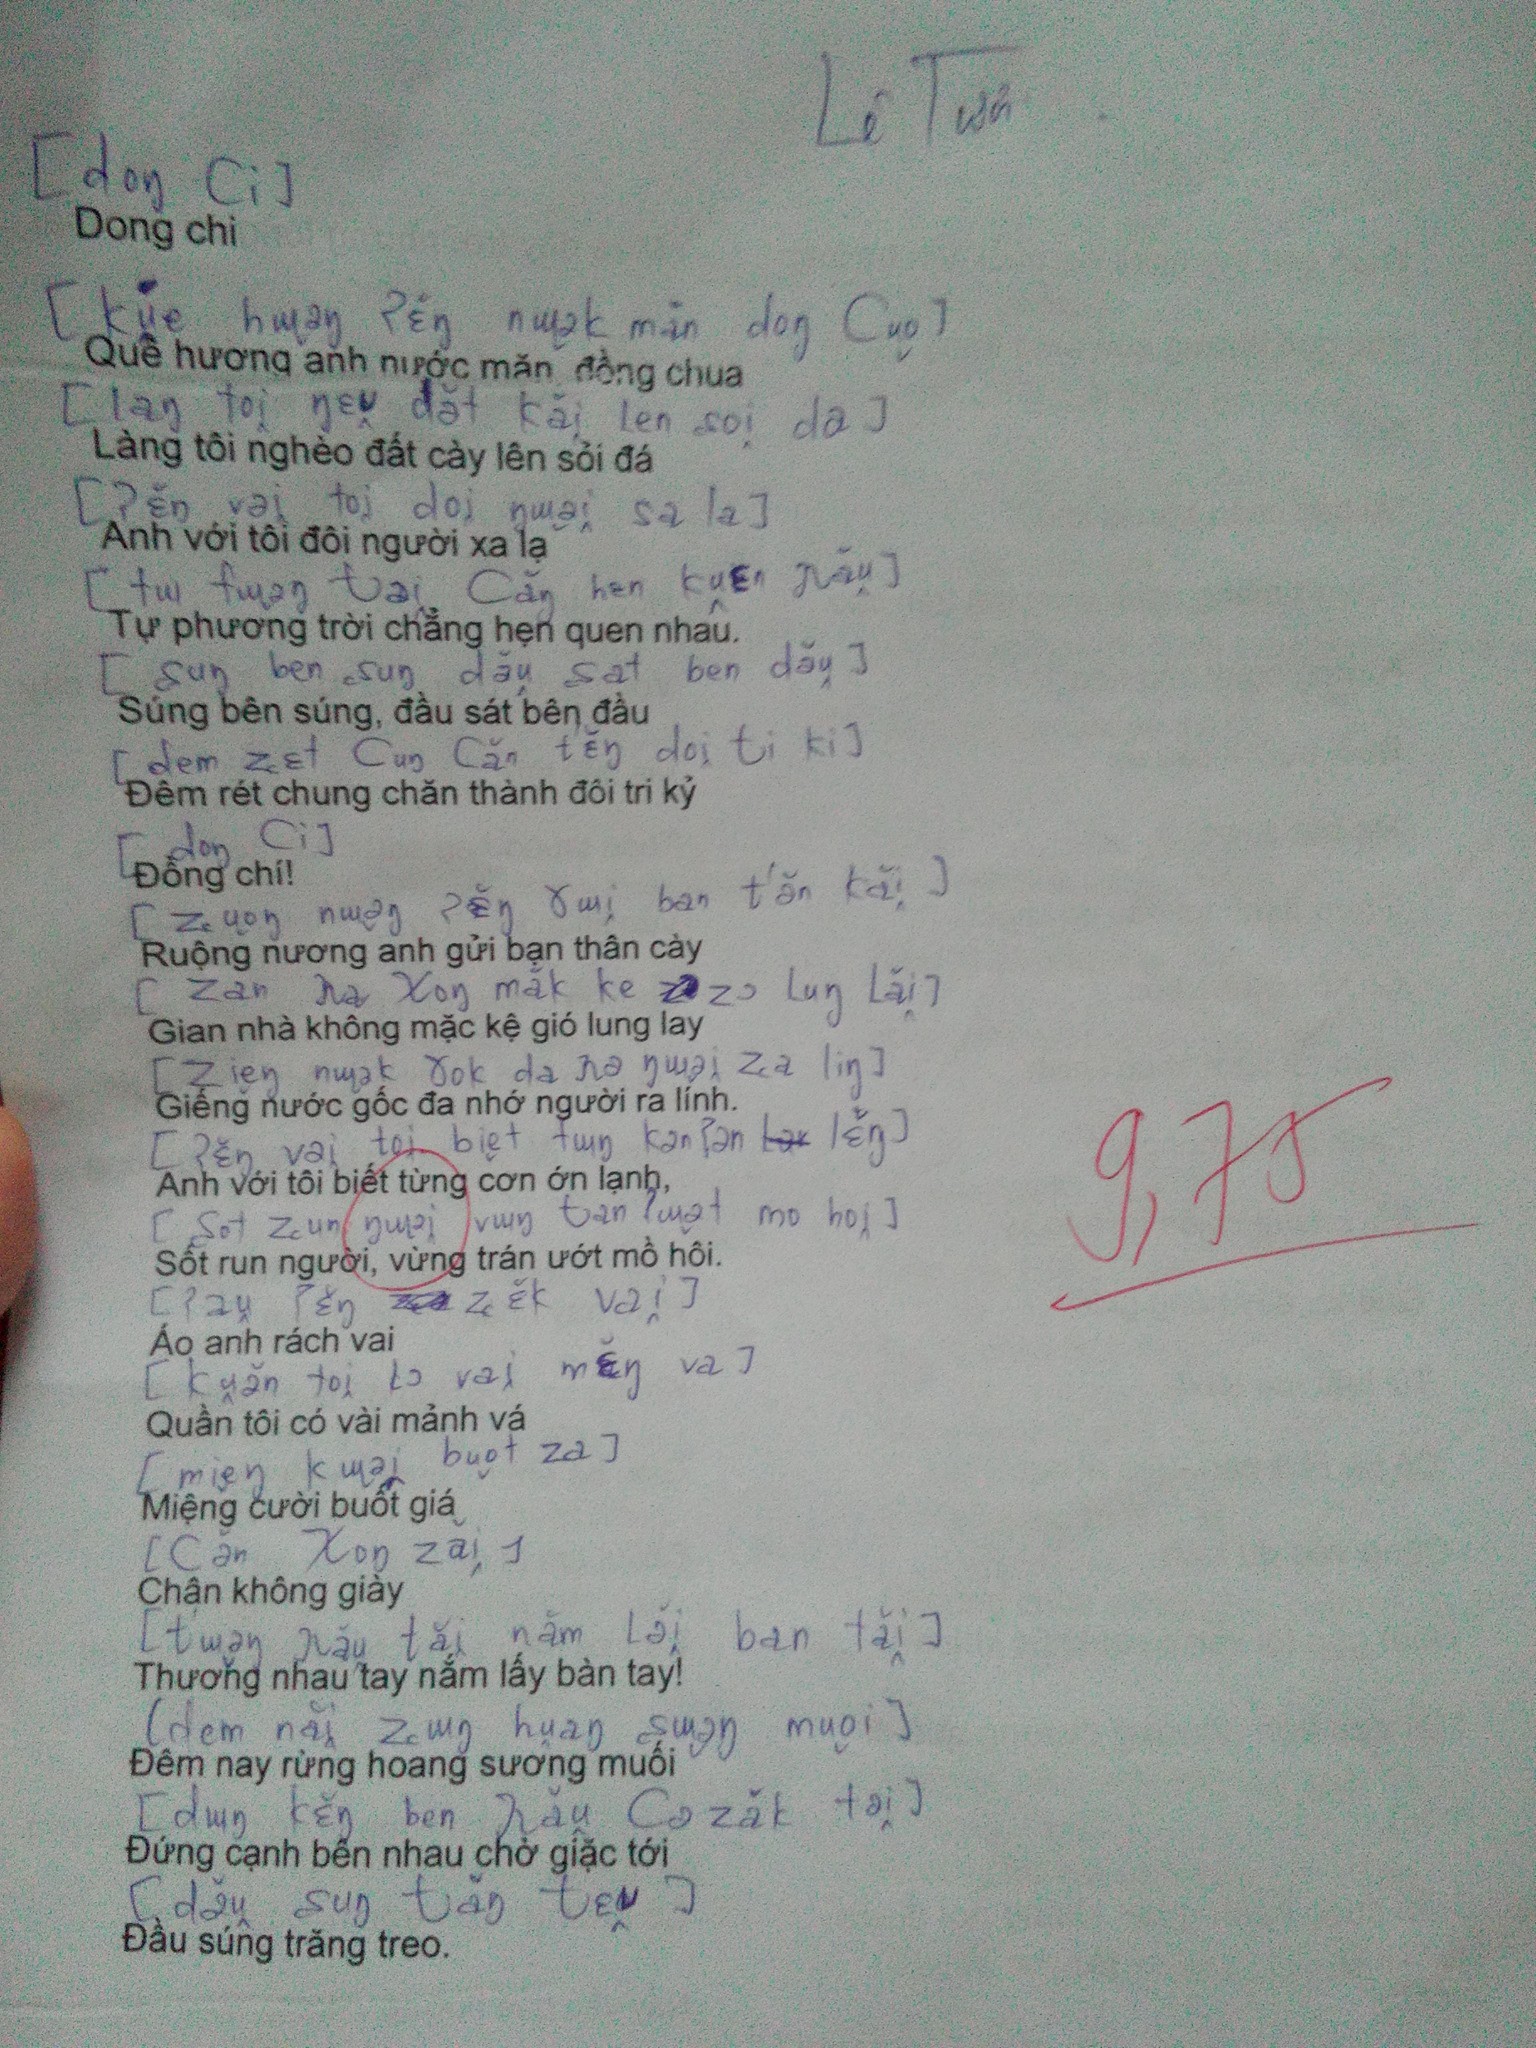 Lê Tuấn
[doŋ Ci]
Dong chi
[kṷe hɯəŋ ʔɛ̆ŋ nɯək măn doŋ Cuo]
Quê hương anh nước măn đồng chua
[laŋ toi̯ ŋɛu̯ dət kăi̯ len sɔi̯ da]
Làng tôi nghèo đất cày lên sỏi đá
[ʔɛ̆ŋ vəi̯ toi̯ doi̯ ŋɯəi̯ sa la]
Anh với tôi đôi người xa lạ
[tɯ fɯəŋ ʈəi̯ Căŋ hɛn kṷɛn ɲău̯]
Tự phương trời chẳng hẹn quen nhau.
[ʂuŋ ben ʂuŋ də̆u̯ ʂat ben də̆u̯]
Súng bên súng, đầu sát bên đầu
[dem ʐɛt Cuŋ Căn t'ɛ̆ŋ doi̯ ʈi ki]
Đêm rét chung chăn thành đôi tri kỷ
[doŋ Ci]
Đồng chí!
[ʐuoŋ nɯəŋ ʔɛ̆ŋ ɤɯi̯ ban t'ə̆n kăi̯]
Ruộng nương anh gửi bạn thân cày
[zan ɲa χoŋ măk ke zɔ luŋ lăi̯]
Gian nhà không mặc kệ gió lung lay
[zieŋ nɯək ɤok da ɲə ŋɯəi̯ ʐa liŋ]
Giếng nước gốc đa nhớ người ra lính.
[ʔɛ̆ŋ vəi̯ toi̯ biet tɯŋ kən ʔən lɛ̆ŋ]
Anh với tôi biết từng cơn ớn lạnh,
[ʂot ʐun ŋɯəi̯ vɯŋ ʈan ʔɯət mo hoi̯]
Sốt run người, vừng trán ướt mồ hôi.
[ʔau̯ ʔɛ̆ŋ ʐɛ̆k vai̯]
Áo anh rách vai
[kṷə̆n toi̯ kɔ vai̯ mɛ̆ŋ va]
Quần tôi có vài mảnh vá
[mieŋ kɯəi̯ buot za]
Miệng cười buốt giá
[Cə̆n χoŋ zăi̯]
Chân không giày
[t'ɯəŋ ɲău̯ tăi̯ năm lə̆i̯ ban tăi̯]
Thương nhau tay nắm lấy bàn tay!
[dem năi̯ ʐɯŋ hṷaŋ ʂɯəŋ muoi]
Đêm nay rừng hoang sương muối
[dɯŋ kɛ̆ŋ ben ɲău̯ Cə zăk təi̯]
Đứng cạnh bên nhau chờ giặc tới
[də̆u̯ ʂuŋ ʈăŋ ʈɛu̯]
Đầu súng trăng treo.
9,75